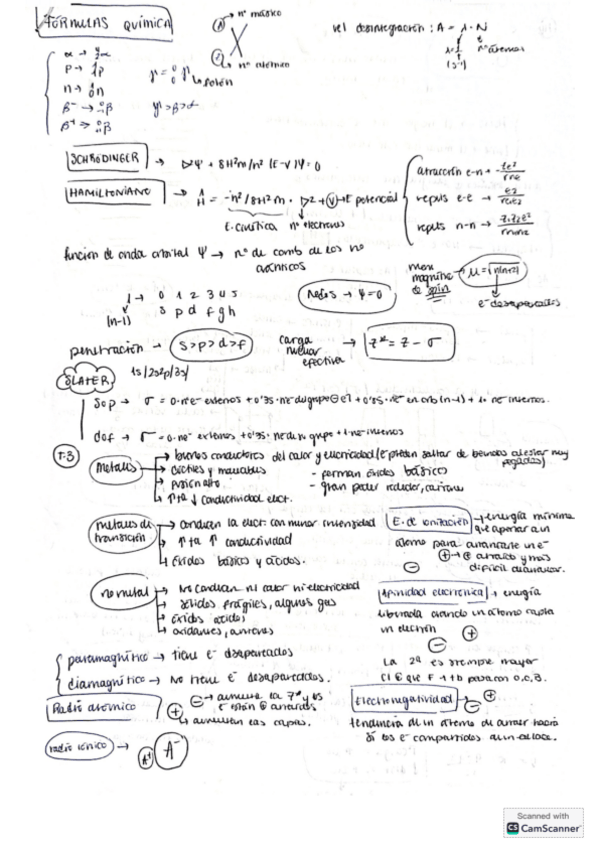 FÓRMULAS QUÍMICA
nº másico
nº atómico
vel desintegración: A = λ · N
nº átomos
(s⁻¹)
α → ⁴₂α
p → ¹₁p
n → ¹₀n
β⁻ → ⁰₋₁β
β⁺ → ⁰₊₁β
γ = ⁰₀γ → fotón
γ > β > α
SCHRÖDINGER → ▷²Ψ + 8π²m/h² (E-V)Ψ = 0
HAMILTONIANO → Ĥ = -h²/8π²m · ▷² + V → E potencial
E. cinética nº electrones
atracción e-n →
repuls e-e →
repuls n-n →
función de onda orbital Ψ → nº de comb de los nº
cuánticos
l → 0 1 2 3 4 5
(n-1) s p d f g h
Nodos → Ψ = 0
mom
magnético
de spin
μ = √n(n+2)
e⁻ desapareados
penetración → s > p > d > f
carga
nuclear
efectiva
→ Z* = Z - σ
SLATER 1s/2s2p/3s/
s o p → σ = 0 · nºe⁻ externos + 0'35 · ne⁻ del grupo + 0'85 · ne⁻ en orb (n-1) + 1 · ne⁻ internos.
d o f → σ = 0 · ne⁻ externos + 0'35 · ne⁻ de su grupo + 1 · ne⁻ internos
T.3
metales → buenos conductores del calor y electricidad (e⁻ pueden saltar de bandas al estar muy
pegados)
→ dúctiles y maleables
→ fusión alto
→ ↑ta ↓ conductividad elect.
- forman óxidos básicos
- gran poder reductor, cationes
metales de
transición
→ conducen la elect. con menor intensidad
→ ↑ta ↑ conductividad
→ óxidos básicos y ácidos.
E. de ionización → energía mínima
que aportar a un
átomo para arrancarle un e⁻
difícil arrancar.
no metal → No conducen ni calor ni electricidad
→ sólidos frágiles, algunos gas
→ óxidos ácidos
→ oxidantes, aniones
Afinidad electrónica → energía
liberada cuando un átomo capta
un electrón
La 2ª es siempre mayor
Cl que F
paramagnético → tiene e⁻ desapareados
diamagnético → No tiene e⁻ desapareados.
Radio atómico
→ aumenta la Z* y los
e⁻ están atraídos
→ aumentan las capas.
Electronegatividad
tendencia de un átomo de atraer hacia
sí los e⁻ compartidos a un enlace.
radio iónico → A⁺ A⁻
Scanned with
CS CamScanner